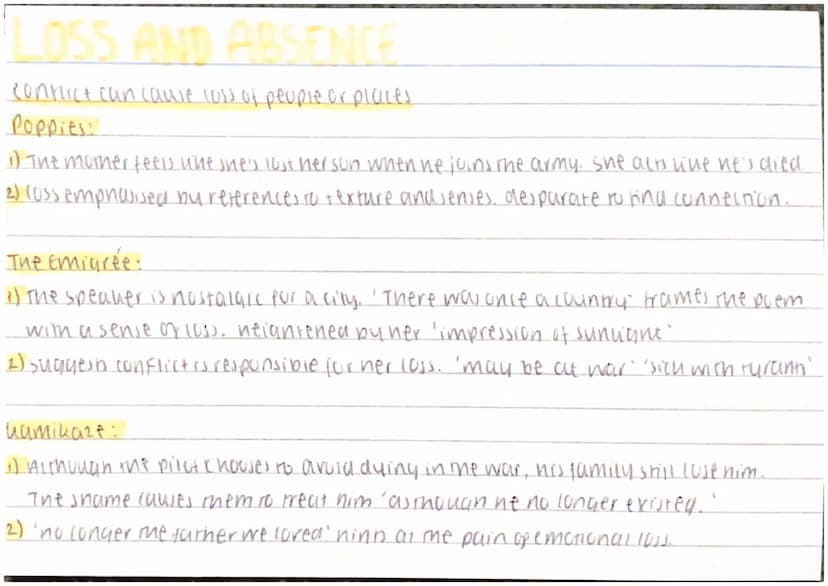 LOSS AND ABSENCE
conflict can cause loss of people or places
Poppies:
1) The mother feels like she's lost her son when he joins the army. She acts like he's died
2) loss emphasised by references to texture and senses. desparate to find connection.
The Emigrée:
1) The speaker is nostalgic for a city. 'There was once a country' frames the poem
with a sense of loss. heightened by her 'impression of sunlight'
2) suggests conflict is responsible for her loss. 'may be at war' 'sick with tyrants'
Kamikaze:
1) Although the pilot chooses to avoid dying in the war, his family still lose him.
The shame causes them to treat him 'as though he no longer existed.'
2) 'no longer the father we loved' hints at the pain of emotional loss